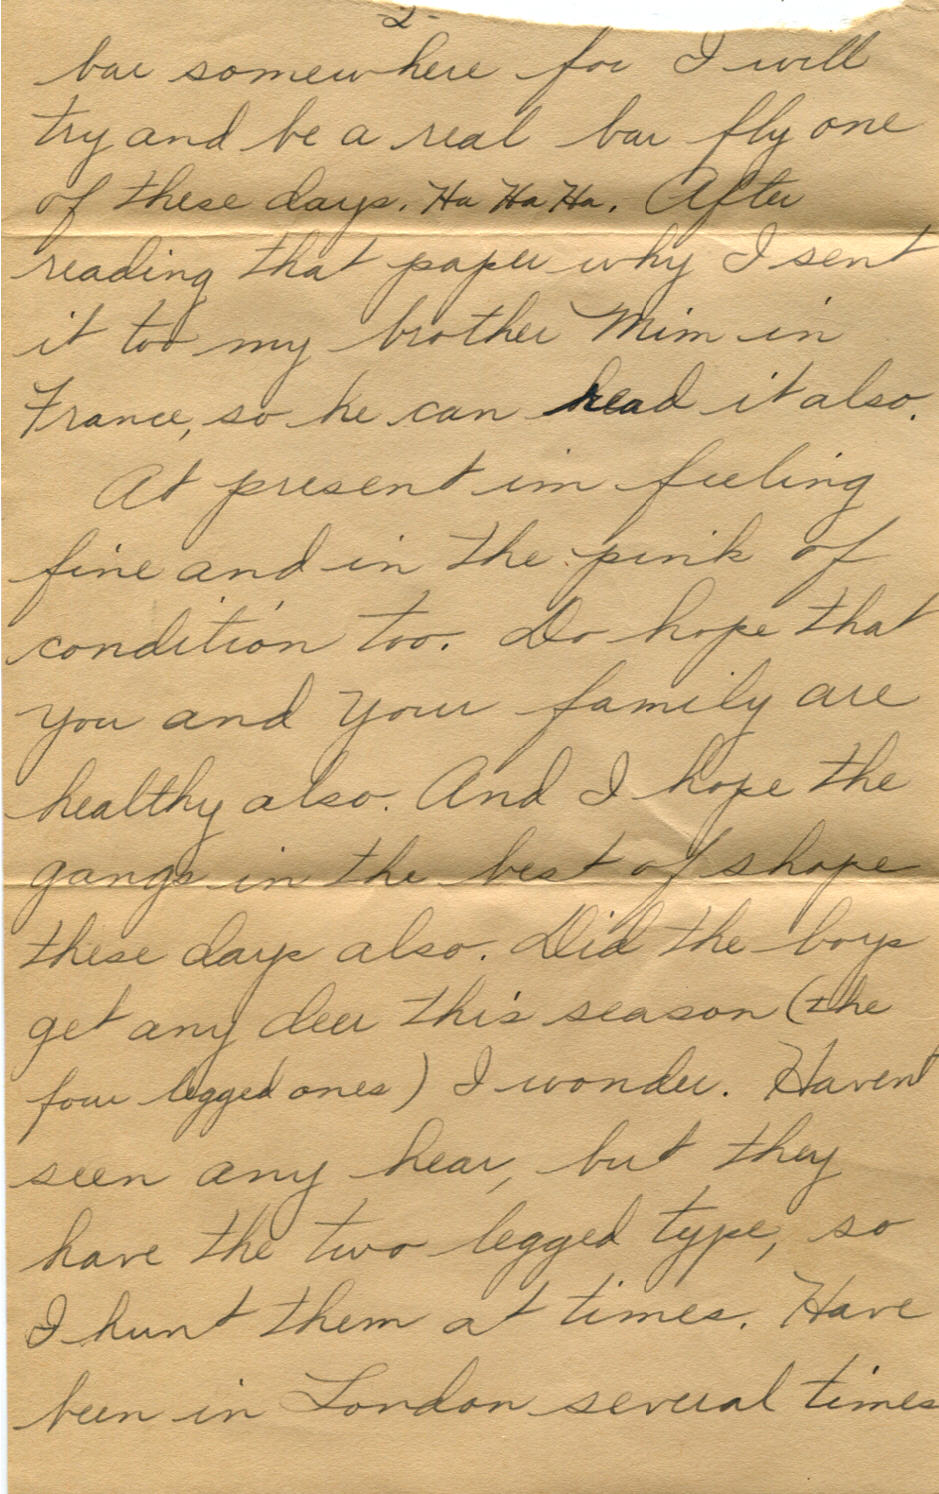 -2-
bar somewhere for I will
try and be a real bar fly one
of these days. Ha Ha Ha. After
reading that paper why I sent
it too my brother Mim in
France, so he can read it also.
At present im feeling
fine and in the pink of
condition too. Do hope that
you and your family are
healthy also. And I hope the
gangs in the best of shape
these days also. Did the boys
get any deer this season (the
four legged ones) I wonder. Havent
seen any hear, but they
have the two legged type, so
I hunt them at times. Have
been in London several times